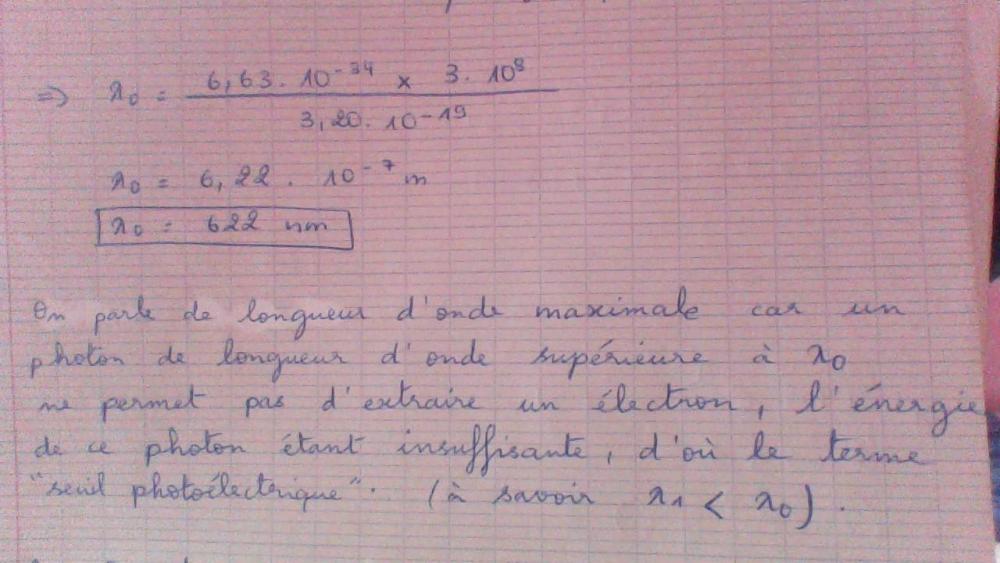 => λ0 = 6,63 . 10^-34 × 3 . 10^8
3,20 . 10^-19
λ0 = 6,22 . 10^-7 m
λ0 = 622 nm
On parle de longueur d'onde maximale car un
photon de longueur d'onde supérieure à λ0
ne permet pas d'extraire un électron, l'énergie
de ce photon étant insuffisante, d'où le terme
"seuil photoélectrique". (à savoir λ1 < λ0).